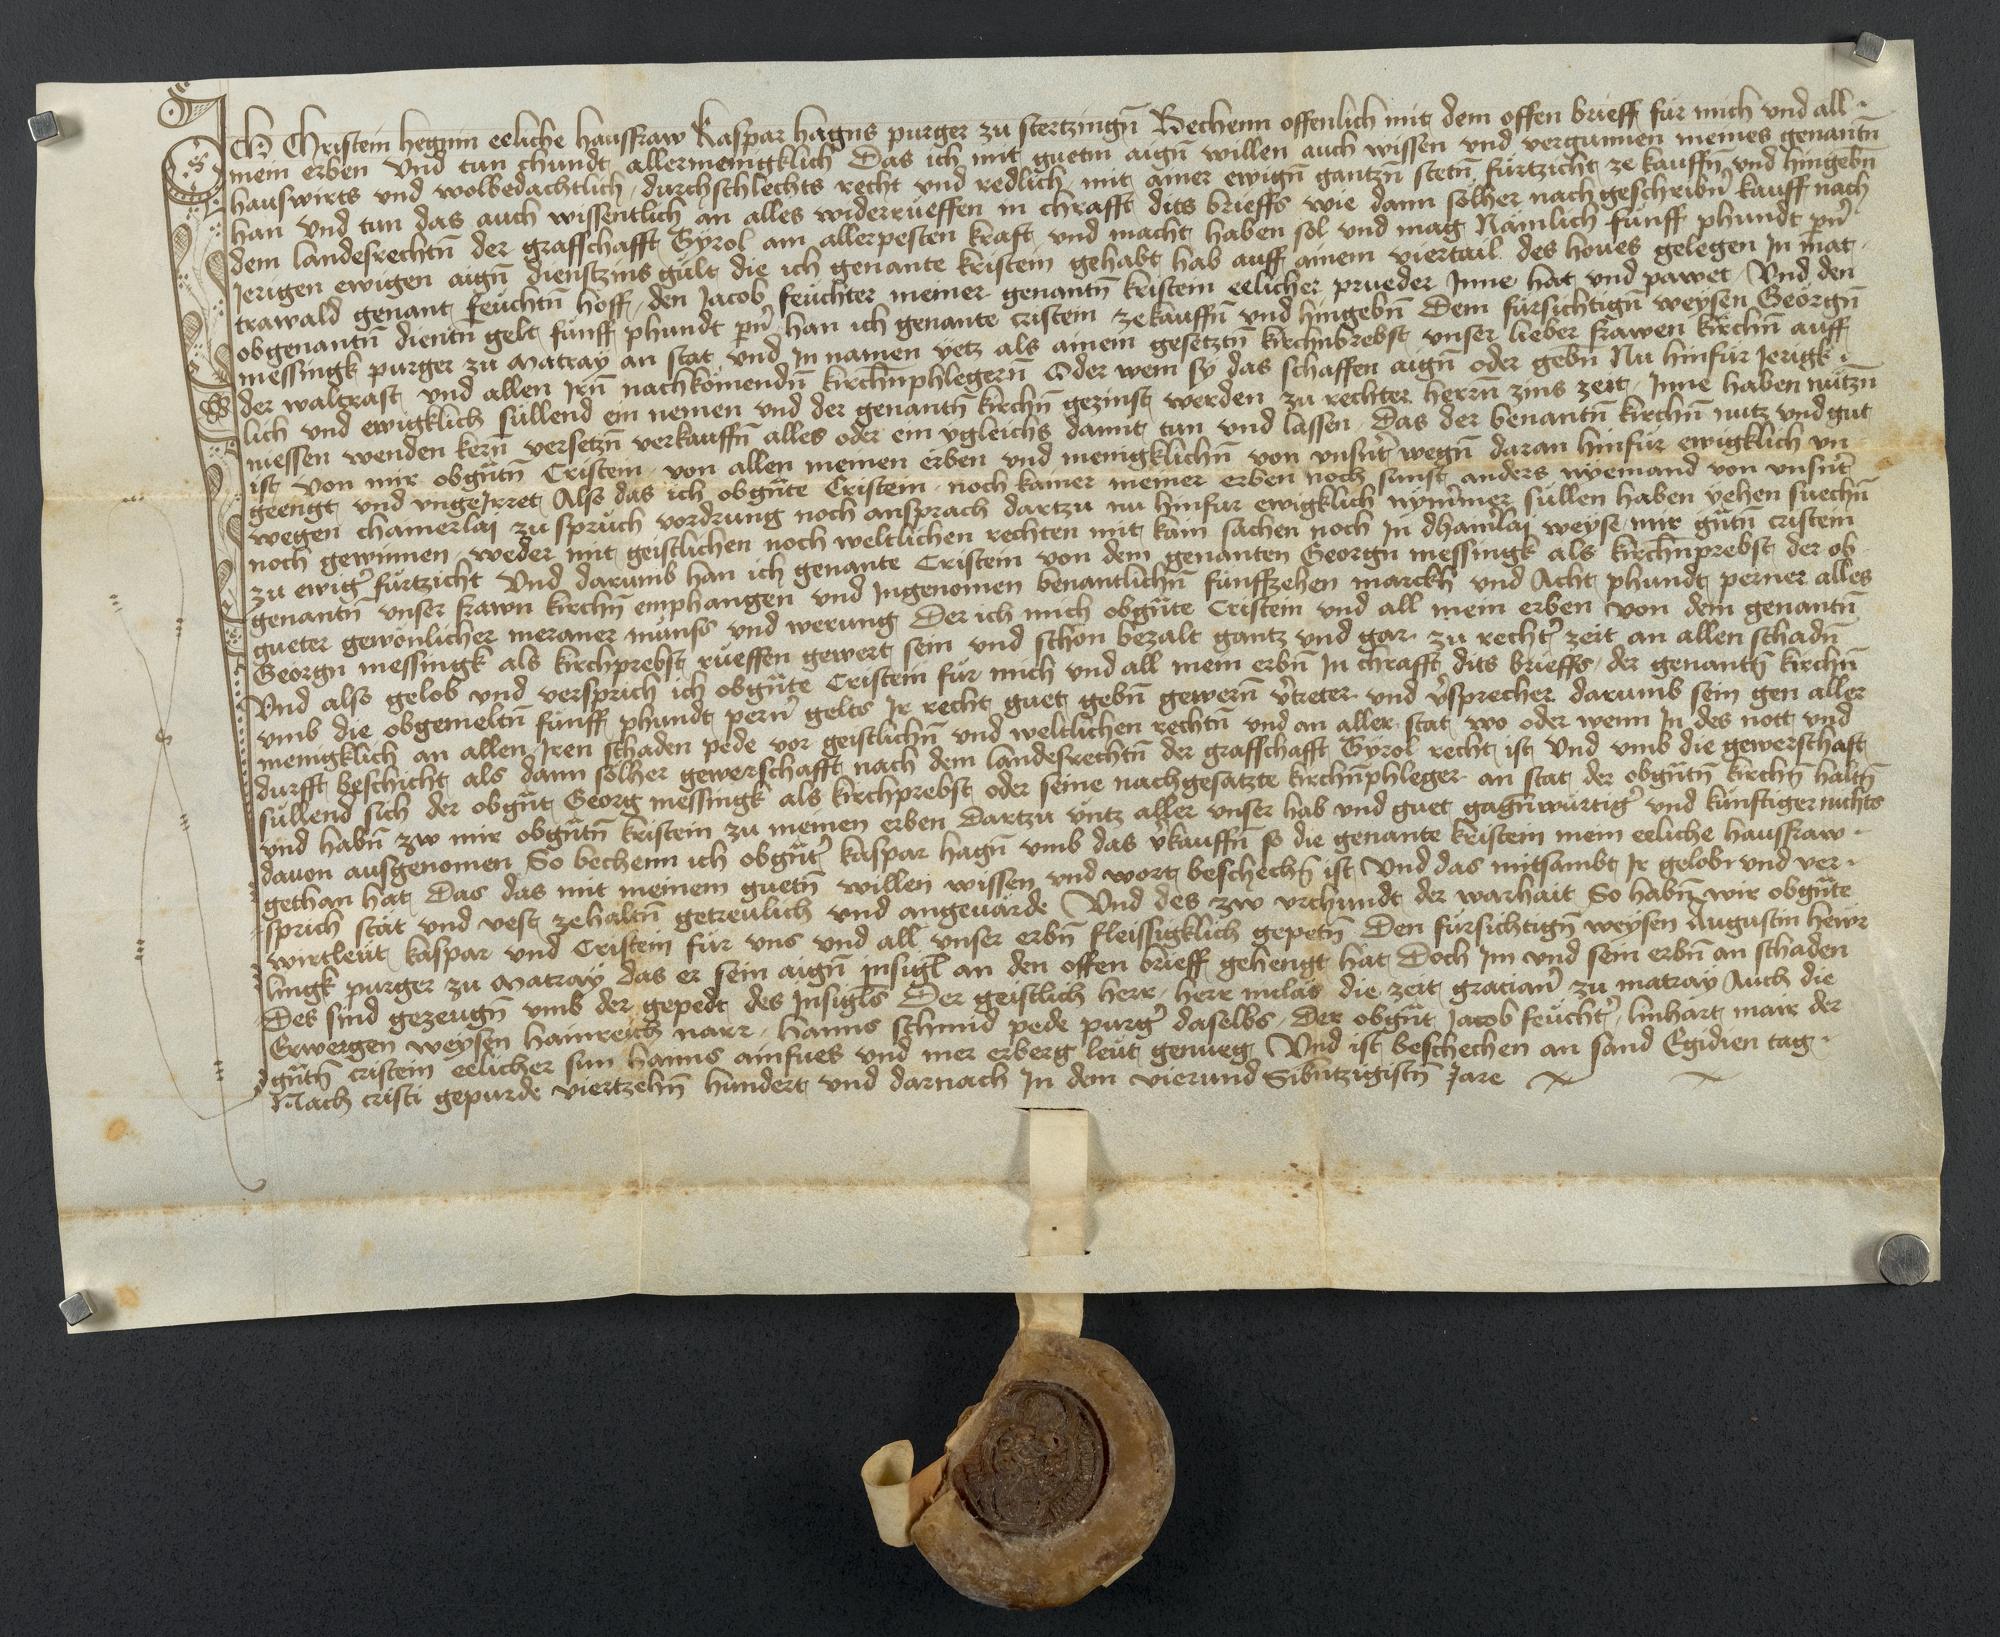 Ich Christein heginn eeliche hausfraw Kaspar hagns purger zu stertzingn̄ Bechenn offenlich mit dem offen brieff für mich vnd all
mein erben Vnd tun chundt allermenigklich Das ich mit guetm aign̄ willen auch wissen vnd vergunnen meines genantn̄
hauswirts vnd wolbedachtlich durchschlechts recht vnd redlich mit ainer ewign̄ gantzn̄ stetn̄ fürtzicht ze kauffn̄ vnd hingebn̄
han vnd tun das auch wissentlich an alles widerrueffen in chrafft dits brieffs wie dann solher nach geschribn̄ kauff nach
dem landesrechtn̄ der graffschafft Tyrol am allerpesten kraft vnd macht haben sol vnd mag Nämlich fünff phundt pn̄
Jerigen ewigen aign̄ dienstzins gült die ich genante kristein gehabt hab auff ainem viertail des houes gelegen In mat
trawald genant feüchtn̄ hoff den Jacob feüchter meiner genantn̄ kristein eelicher prueder Inne hat vnd pawet Vnd den
obgenantn̄ dientn̄ gelt fünff phundt pn̄ han ich genante cristein zekauffn̄ vnd hingebn̄ Dem fürsichtign̄ weysen Geörgn̄
messingk purger zu Matray an stat vnd In namen yetz als ainem gesetztn̄ kirchnbrebst vnser lieber frawen kirchn̄ auff
der waltrast vnd allen Jrn̄ nachkömendn̄ kirchn̄phlegern̄ Oder wem sy das schaffen aign̄ oder gebn̄ Nu hinfür Jerigk
lich vnd ewigklich süllend ein nemen vnd der genantn̄ kirchn̄ gezinst werden zu rechter herrn̄ zins zeit Inne haben nützn̄
niessen wenden kern̄ versetzn̄ verkauffn̄ alles oder ein ygleichs damit tun vnd lassen Das der benantn̄ kirchn̄ nutz vnd gut
ist von mir obgn̄tn̄ Cristein von allen meinen erben vnd menigklichn̄ von vnsn̄ wegn̄ daran hinfür ewigklich vn
geengt vnd vngeJrret Also das ich obgn̄te Cristein noch kainer meiner erben noch sunst anders nyemand von vnsn̄
wegen chamerlai zu spruch vordrung noch ansprach dartzu nu hinfur ewigklich nym̄mer süllen haben yehen suechn̄
noch gewinnen weder mit geistlichen noch weltlichen rechten mit kain sachen noch In dham̄lai weyse mir gn̄tn̄ cristein
zu ewig̉ fürtzicht Vnd darumb han ich genante Cristein von dem genanten Georgn messingk als kirchn̄prebst der ob
genantn̄ vnser frawn kirchn̄ emphangen vnd Ingenomen benantlichn̄ fünffzehen marckh vnd Acht phundt perner alles
gueter gewonlicher meraner münss vnd werung Der ich mich obgn̄te Cristein vnd all mein erben von dem genantn̄
Georgn messingk als kirchprebst rueffen gewert sein vnd schon bezalt gantz vnd gar zu recht̉ zeit an allen schadn̄
Vnd also gelob vnd versprich ich obgn̄te Cristein für mich vnd all mein erbn̄ In chrafft dits brieffs der genantn̄ kirchn̄
vmb die obgemeltn̄ fünff phundt pern̉ gelts Ir recht guet gebn̄ gewern̄ v̉treter vnd v̉sprecher darumb sein gen aller
menigklich an allen Jren schaden pede vor geistlichn̄ vnd weltlichen rechtn̄ vnd an aller stat wo oder wenn In des nott vnd
durfft beschicht als dann sölher gewerschafft nach dem landesrechtn̄ der graffschafft Tyrol recht ist Vnd vmb die gewerschaft
süllend sich der obgn̄t Georg messingk als kirchprebst oder seine nachgesatzte kirchn̄phleger an stat der obgn̄tn̄ kirchn̄ haltn̄
vnd habn̄ zw mir obgn̄tn̄ kristein zu meinen erben Dartzu vntz aller vnser hab vnd guet gagn̄würtig̉ vnd künftiger nichts
dauon ausgenomen So bechenn ich obgn̄t̉ kaspar hagn̄ vmb das v̉kauffn̄ so die genante kristein mein eeliche hausfraw
gethan hat Das das mit meinem guetn̄ willen wissen vnd wort beschechn̄ ist Vnd das mitsambt Ir gelobt vnd ver
sprich stät vnd vest zehaltn̄ getreulich vnd angeuärde Vnd des zw vrchundt der warhait So habn̄ wir obgn̄te
wirtleüt kaspar vnd Cristein für vns vnd all vnser erbn̄ fleissigklich gepetn̄ Den fürsichtign̄ weysen Augustin hewr
lingk purger zu Matray das er sein aign̄ Insigl an den offen brieff gehengt hat Doch Im vnd sein erbn̄ an schaden
Des sind gezeugn̄ vmb der gepedt des Insigls Der geistlich herr herr nıclas die zeit gracian̉ zu matray Auch die
Erwergen weysen hainreich narr hanns schmid pede purg̉ daselbs Der obgn̄t Jacob feücht̉ linhart mair der
gn̄tn̄ cristein eelicher sun hanns ainfues vnd mer erberg leüt genueg Vnd ist beschechen an sand Egidien tag
Nach cristi gepurde viertzehn̄ hundert vnd darnach In dem vierund Sibntzigistn̄ Jare